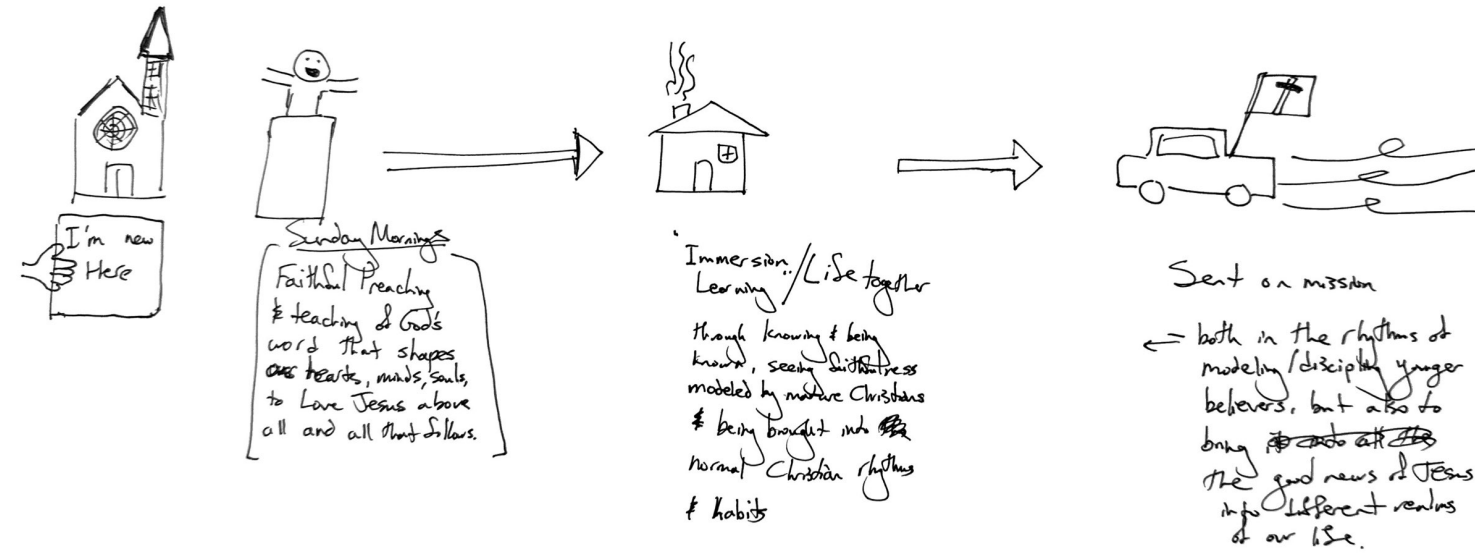 I'm new
Here
Sunday Mornings
Faithful Preaching
& teaching of God's
word that shapes
hearts, minds, souls,
to Love Jesus above
all and all that follows.
Immersion / Life together
Learning
through knowing & being
known, seeing faithfulness
modeled by mature Christians
& being brought into
normal Christian rhythms
& habits
Sent on mission
both in the rhythms of
modeling/discipling younger
believers, but also to
bring
the good news of Jesus
into different realms
of our life.